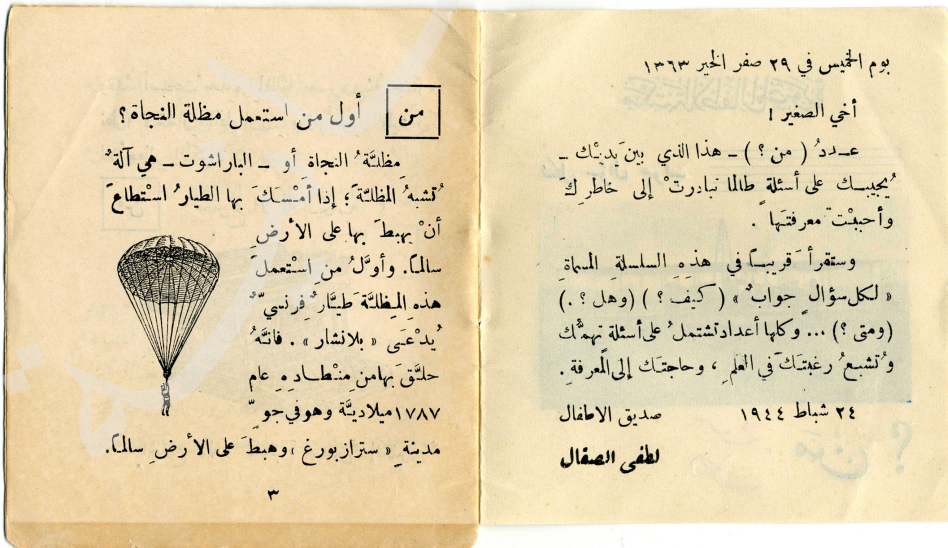 يوم الخميس في ٢٩ صفر الخير ١٣٦٣
أخي الصغير !
عـددُ ( من ؟ ) ــ هذا الذي بين يَديْك ــ
يُجيبـك على أسئلةٍ طالما تبادرتْ إلى خاطرِكَ
وأحببْتَ معرفتَها .
وستقرأ قريبـاً في هذه السلسلةِ المسماةِ
« لكل سؤالٍ جوابٌ » ( كيف ؟ ) ( وهل ؟ . )
( ومتى ؟ ) ... وكلها أعداد تشتملُ على أسئلة تهمُّك
وتُشبعُ رغبتَـكَ في العلمِ ، وحاجتَـك إلى المعرفةِ .
٢٤ شباط ١٩٤٤ صديق الاطفال
لطفي الصقال
من أول من استعمل مظلة النجاة ؟
مِظلـَّةُ النجاةِ أو ــ الباراشوت ــ هي آلةٌ
تُشبهُ المظلـَّةَ ؛ إذا أمْسـَكَ بها الطيارُ اسْتطاعَ
أنْ يهبطَ بها على الأرضِ
سالمـاً. وأوَّلُ منِ اسْتعملَ
هذه المِـظلـَّةَ طيـَّارٌ فِرنسيٌّ
يُدْعَـى « بلانشار » . فانـَّهُ
حلـَّقَ بها من مِنْطـادِهِ عام
١٧٨٧ ميلاديـَّة وهو في جوِّ
مدينةِ « سترازبورغ » وهبطَ على الأرضِ سالمـاً.
٣